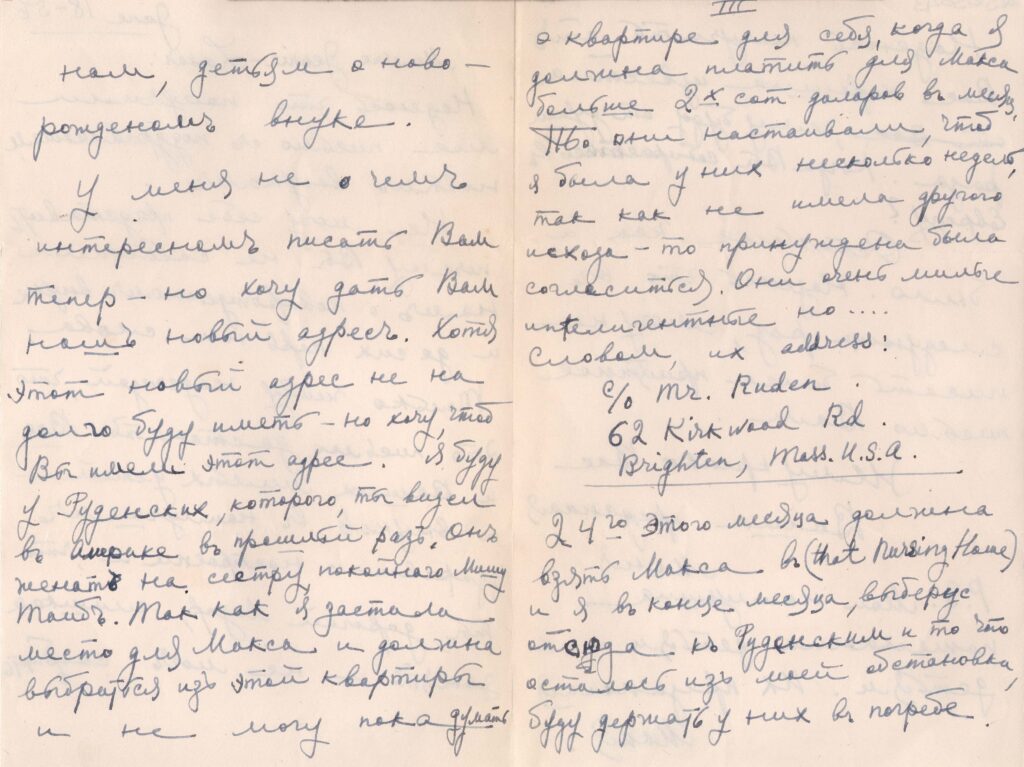 нам, детьям о ново-
рожденомъ внуке.
У меня не о чемъ
интересномъ писать Вам
тепер — но хочу дать Вам
нашъ новый адресъ. Хотя
этот новый адрес не на
долго буду иметь — но хочу, чтоб
Вы имели этот адрес. Я буду
у Руденских, которого, ты видел
въ Америке въ прошлый разъ. Онъ
женатъ на сестру покойного Мишу
Таибъ. Так как я застала
место для Макса и должна
выбраться изъ этой квартиры
и не могу пока думать
III
о квартире для себя, когда я
должна платить для Макса
больше 2х сот доларов въ месяц,
То они настаивали, чтоб
я была у них несколько недель,
так как не имела другого
исхода — то принуждена была
согласиться. Они очень милые
интелигентные но....
Словом, их address:
c/o Mr. Ruden.
62 Kirkwood Rd.
Brighten, Mass. U.S.A.
24го этого месяца должна
взять Макса въ (that Nursing Home)
и я въ конце месяца, выберус
отсюда къ Руденским и то что
осталось изъ моей обстановка,
буду держать у них въ погребе.